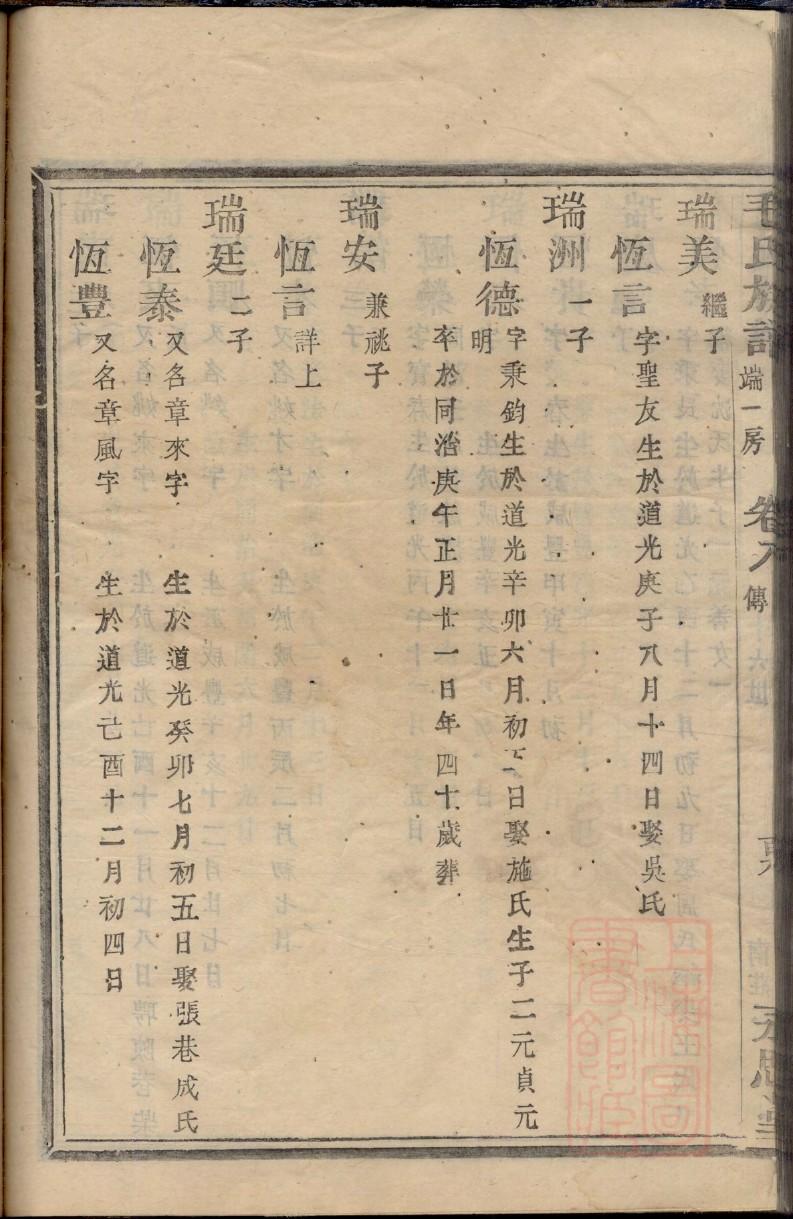 毛氏族譜 端一房 卷八 傳
瑞美 繼子
恆言 字聖友生於道光庚子八月十四日娶吳氏
瑞洲 一子
恆德 字秉鈞生於道光辛卯六月初二日娶施氏生子二元貞元
明 卒於同治庚午正月廿一日年四十歲葬
瑞安 兼祧子
恆言 詳上
瑞廷 二子
恆泰 又名章來字 生於道光癸卯七月初五日娶張巷成氏
恆豐 又名章風字 生於道光己酉十二月初四日